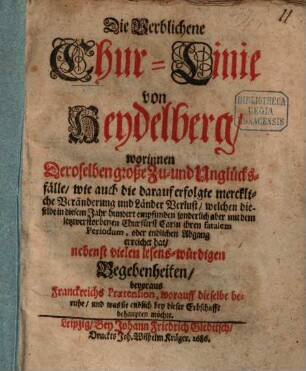 Die Verblichene
Chur-Linie
von
Heydelberg/
worinnen
Deroselben große Zu-und Unglücks-
fälle/ wie auch die darauf erfolgte merckli-
che Veränderung und Länder Verlust/ welchen die-
selbe in diesem Jahr hundert empfunden sonderlich aber mit dem
letzverstorbenen Churfürst Carln ihren fatalem
Periodum, oder endlichen Abgang
erreichet hat/
nebenst vielen lesens-würdigen
Begebenheiten/
bevoraus
Franckreichs Prætention, worauff dieselbe be-
ruhe/ und was sie endlich bey dieser Erbschafft
behaupten möchte.
Leipzig/ Bey Johann Friedrich Gleditsch/
Druckts Joh. Wilhelm Krüger. 1686.
BIBLIOTHECA
REGIA
MONACENSIS